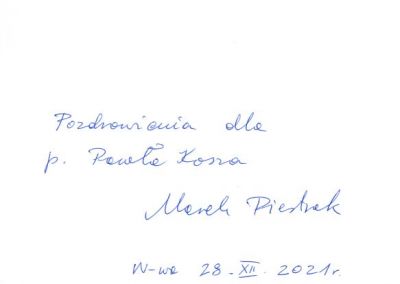 Pozdrowienia dla
p. Pawła Kosza
Marek Piestrak
W-wa 28. XII. 2021r.